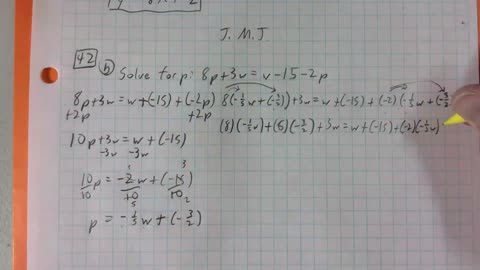 J. M. J.
42 b Solve for p: 8p+3w = w-15-2p
8p+3w = w+(-15)+(-2p)
+2p +2p
10p+3w = w+(-15)
-3w -3w
10p = -2w + (-15)
10 10 10
p = -1/5w + (-3/2)
8(-1/5w+(-3/2))+3w = w+(-15)+(-2)(-1/5w+(-3/2
(8)(-1/5w)+(8)(-3/2)+3w = w+(-15)+(-2)(-1/5w)